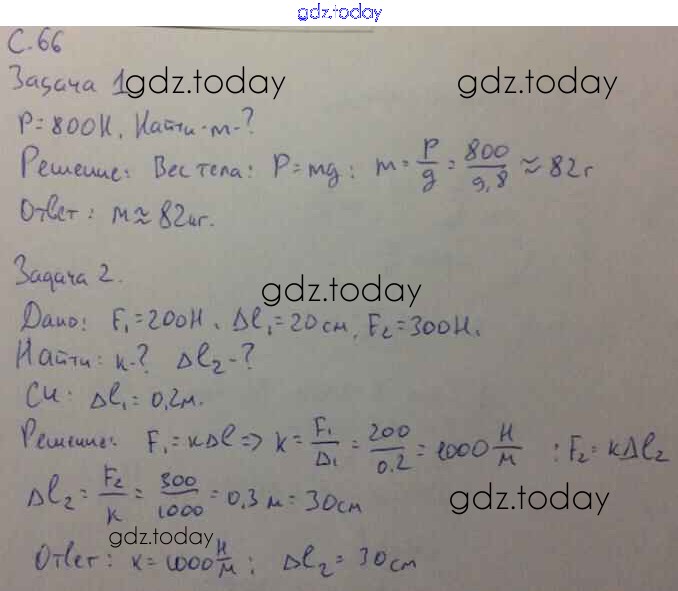 gdz.today
С. 66
Задача 1 gdz.today gdz.today
P = 800Н. Найти - m - ?
Решение: Вес тела: P = mg; m = P/g = 800/9,8 ≈ 82г
Ответ: м ≈ 82кг.
Задача 2. gdz.today
Дано: F₁ = 200Н. Δl₁ = 20см, F₂ = 300Н.
Найти: к - ? Δl₂ - ?
Си: Δl₁ = 0,2м.
Решение: F₁ = кΔl => к = F₁/Δ₁ = 200/0.2 = 1000 Н/м ; F₂ = кΔl₂
Δl₂ = F₂/к = 300/1000 = 0,3 м = 30см gdz.today
gdz.today
Ответ: к = 1000 Н/м ; Δl₂ = 30см